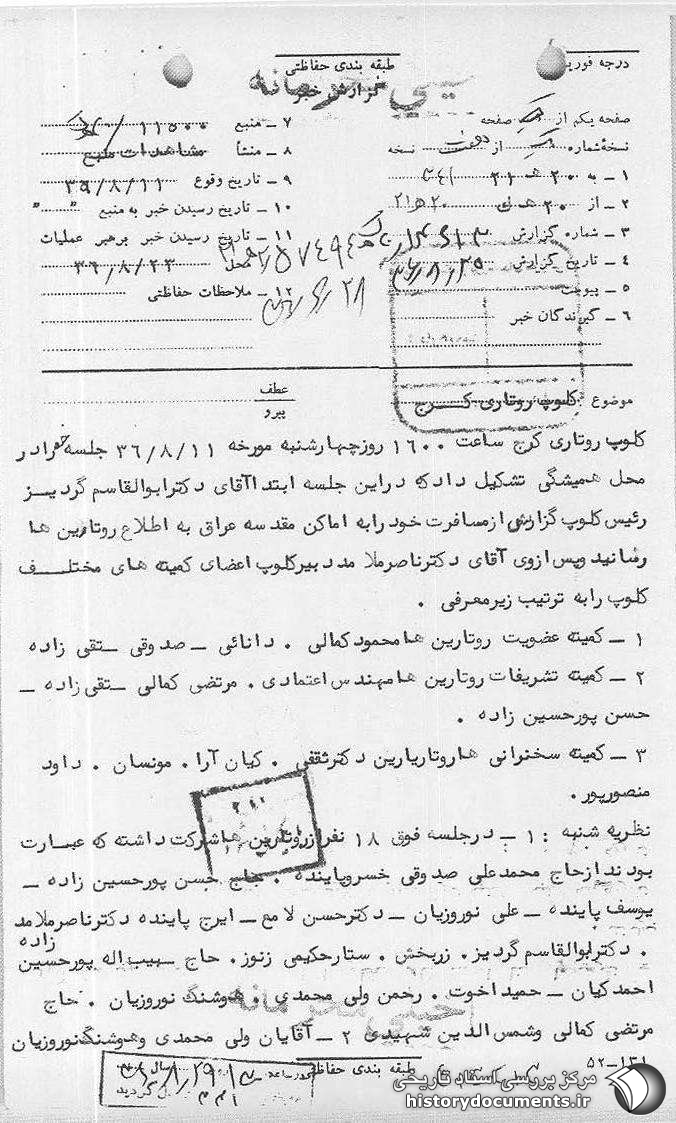 درجه فوریت
طبقه بندی حفاظتی
گزارش خبر
خیلی محرمانه
صفحه یکم از صفحه
نسخهٔ شماره از نسخه
۱ - به ۲۰ هـ ۲۱
۲ - از ۲۰ هـ ک
۳ - شماره گزارش
۴ - تاریخ گزارش
۵ - پیوست
۶ - گیرندگان خبر
۷ - منبع ۱۱۵۰۰
۸ - منشأ مشاهدات منبع
۹ - تاریخ وقوع ۳۶/۸/۱۱
۱۰ - تاریخ رسیدن خبر به منبع " "
۱۱ - تاریخ رسیدن خبر برهبر عملیات
محل ۳۶/۸/۲۳
۱۲ - ملاحظات حفاظتی
موضوع کلوپ روتاری کرج
عطف
پیرو
کلوپ روتاری کرج ساعت ۱۶۰۰ روز چهارشنبه مورخه ۳۶/۸/۱۱ جلسه خودرا در
محل همیشگی تشکیل داد که دراین جلسه ابتدا آقای دکتر ابوالقاسم گردیز
رئیس کلوپ گزارش از مسافرت خود را به اماکن مقدسه عراق به اطلاع روتارین ها
رسانید و پس از وی آقای دکتر ناصر ملا مدد بیر کلوپ اعضای کمیته های مختلف
کلوپ را به ترتیب زیر معرفی .
۱ - کمیته عضویت روتارین ها محمود کمالی . دانائی - صدوقی - تقی زاده
۲ - کمیته تشریفات روتارین ها مهندس اعتمادی . مرتضی کمالی - تقی زاده -
حسن پور حسین زاده .
۳ - کمیته سخنرانی ها روتاریارین دکتر ثقفی . کیان آرا . مونسان . داود
منصورپور .
نظریه شنبه : ۱ - درجلسه فوق ۱۸ نفر از روتارین ها شرکت داشته که عبارت
بودند از حاج محمدعلی صدوقی خسرو پاینده . حاج حسن پور حسین زاده -
یوسف پاینده - علی نوروزیان - دکتر حسن لامع - ایرج پاینده دکتر ناصر ملامد
. دکتر ابوالقاسم گردیز . زربخش . ستار حکیمی زنوز . حاج حبیب اله پور حسین زاده
احمد کیان - حمید اخوت . رحمن ولی محمدی . هوشنگ نوروزیان . حاج
مرتضی کمالی و شمس الدین شهیدی ۲ - آقایان ولی محمدی و هوشنگ نوروزیان
خیلی محرمانه
طبقه بندی حفاظتی
۵۲-۱۳۱
مرکز بررسی اسناد تاریخی
historydocuments.ir